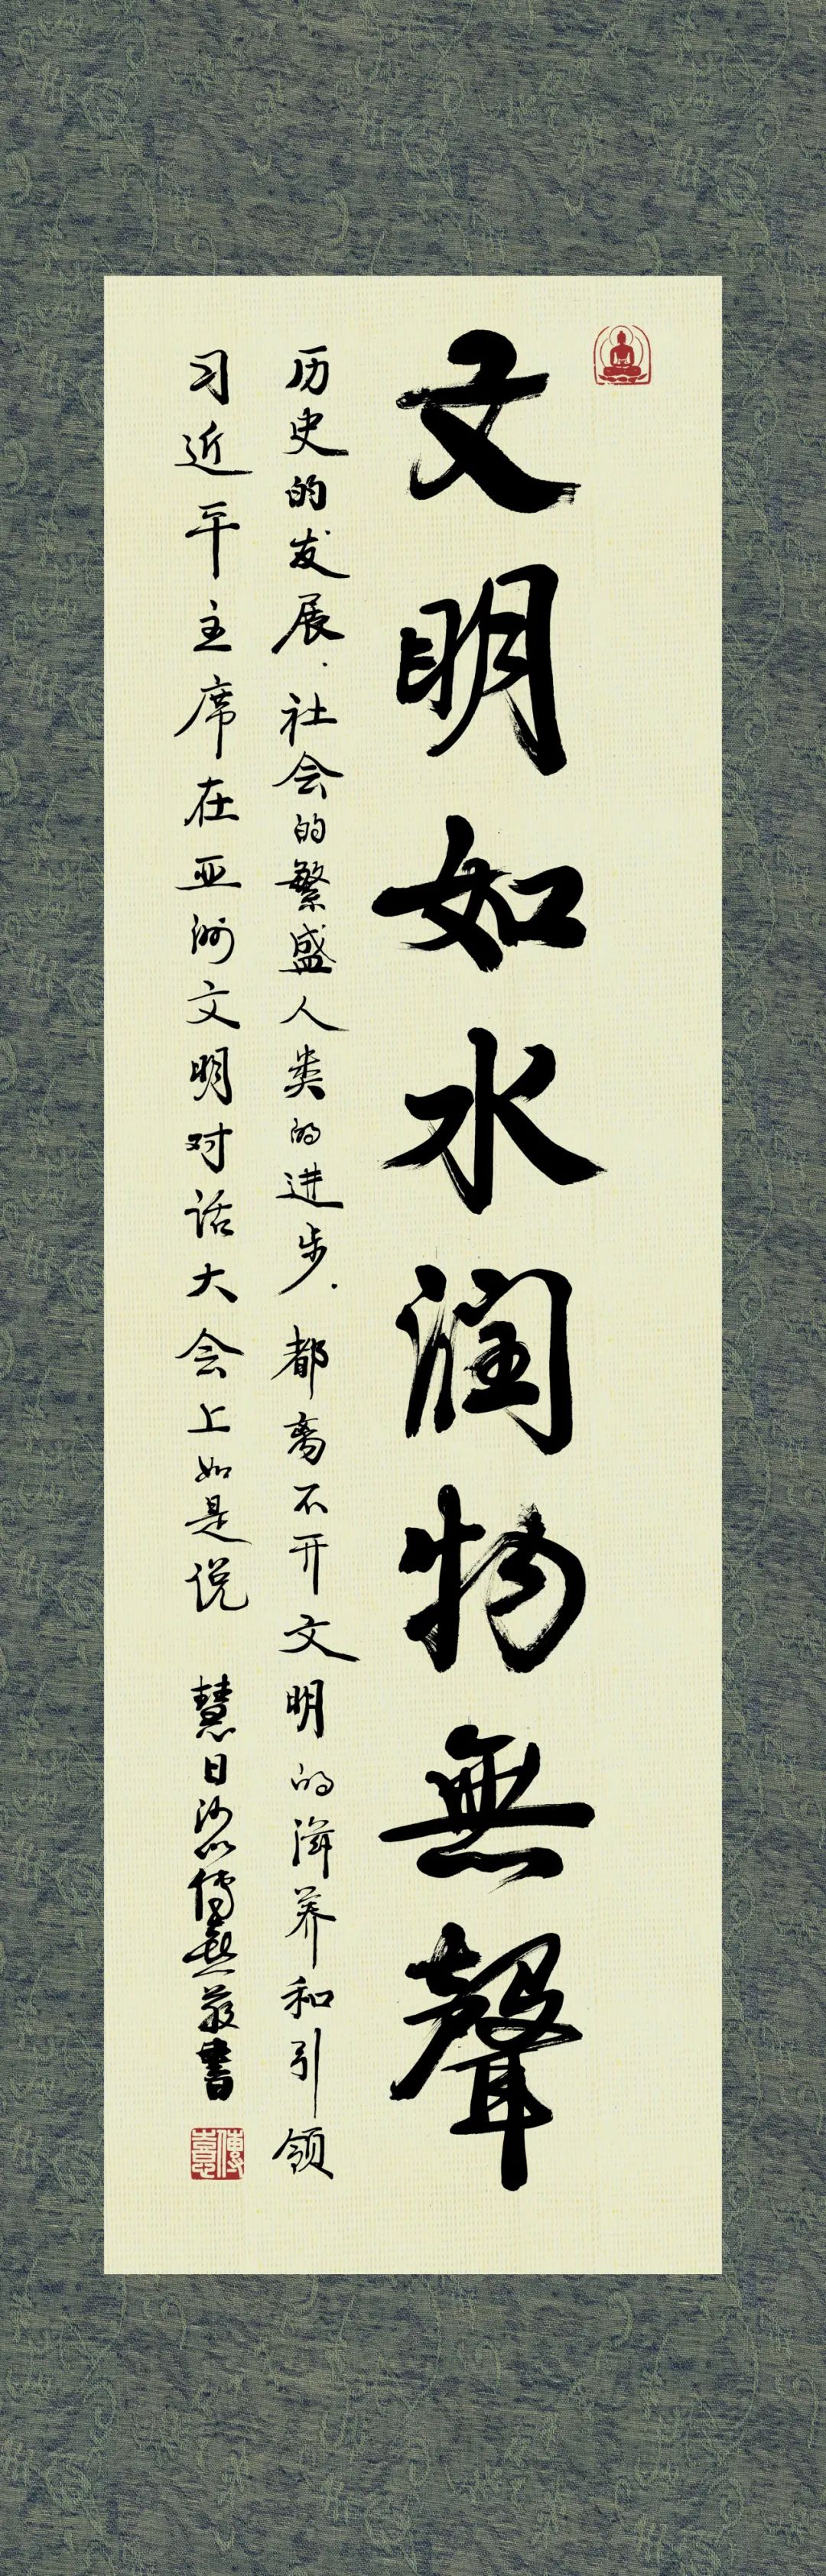 文明如水润物無聲
历史的发展、社会的繁盛、人类的进步、都离不开文明的滋养和引领
习近平主席在亚洲文明对话大会上如是说 慧日沙门傳熹敬書
傳熹